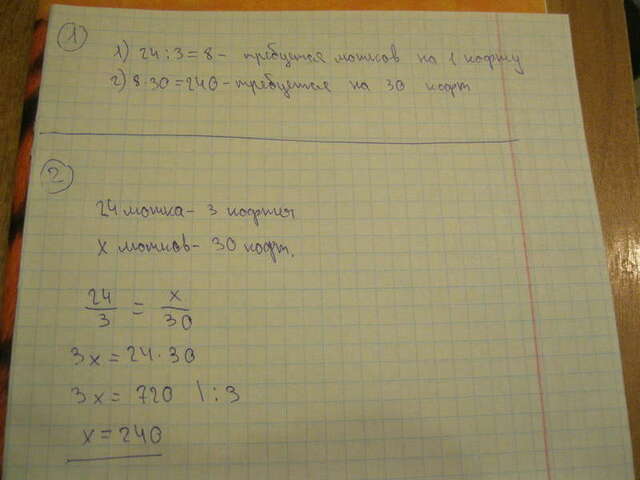 1
1) 24:3=8 - требуется мотков на 1 кофту
2) 8·30=240 - требуется на 30 кофт
2
24 мотка - 3 кофты
x мотков - 30 кофт.
24/3 = x/30
3x = 24·30
3x = 720 \ :3
x = 240